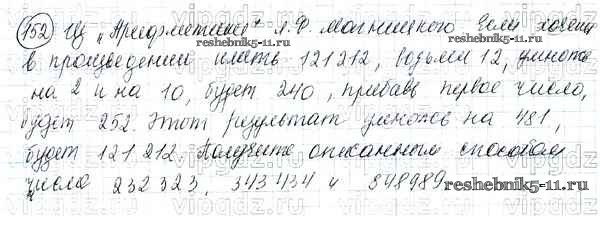 152 Из "Арифметики" Л.Ф. Магницкого Если хочешь
www.reshebnik5-11.ru
в произведении иметь 121 212, возьми 12, умножь
на 2 и на 10, будет 240, прибавь первое число,
будет 252. Этот результат умножь на 481,
будет 121 212. Получите описанным способом
числа 232 323, 343 434 и 848989
www.reshebnik5-11.ru